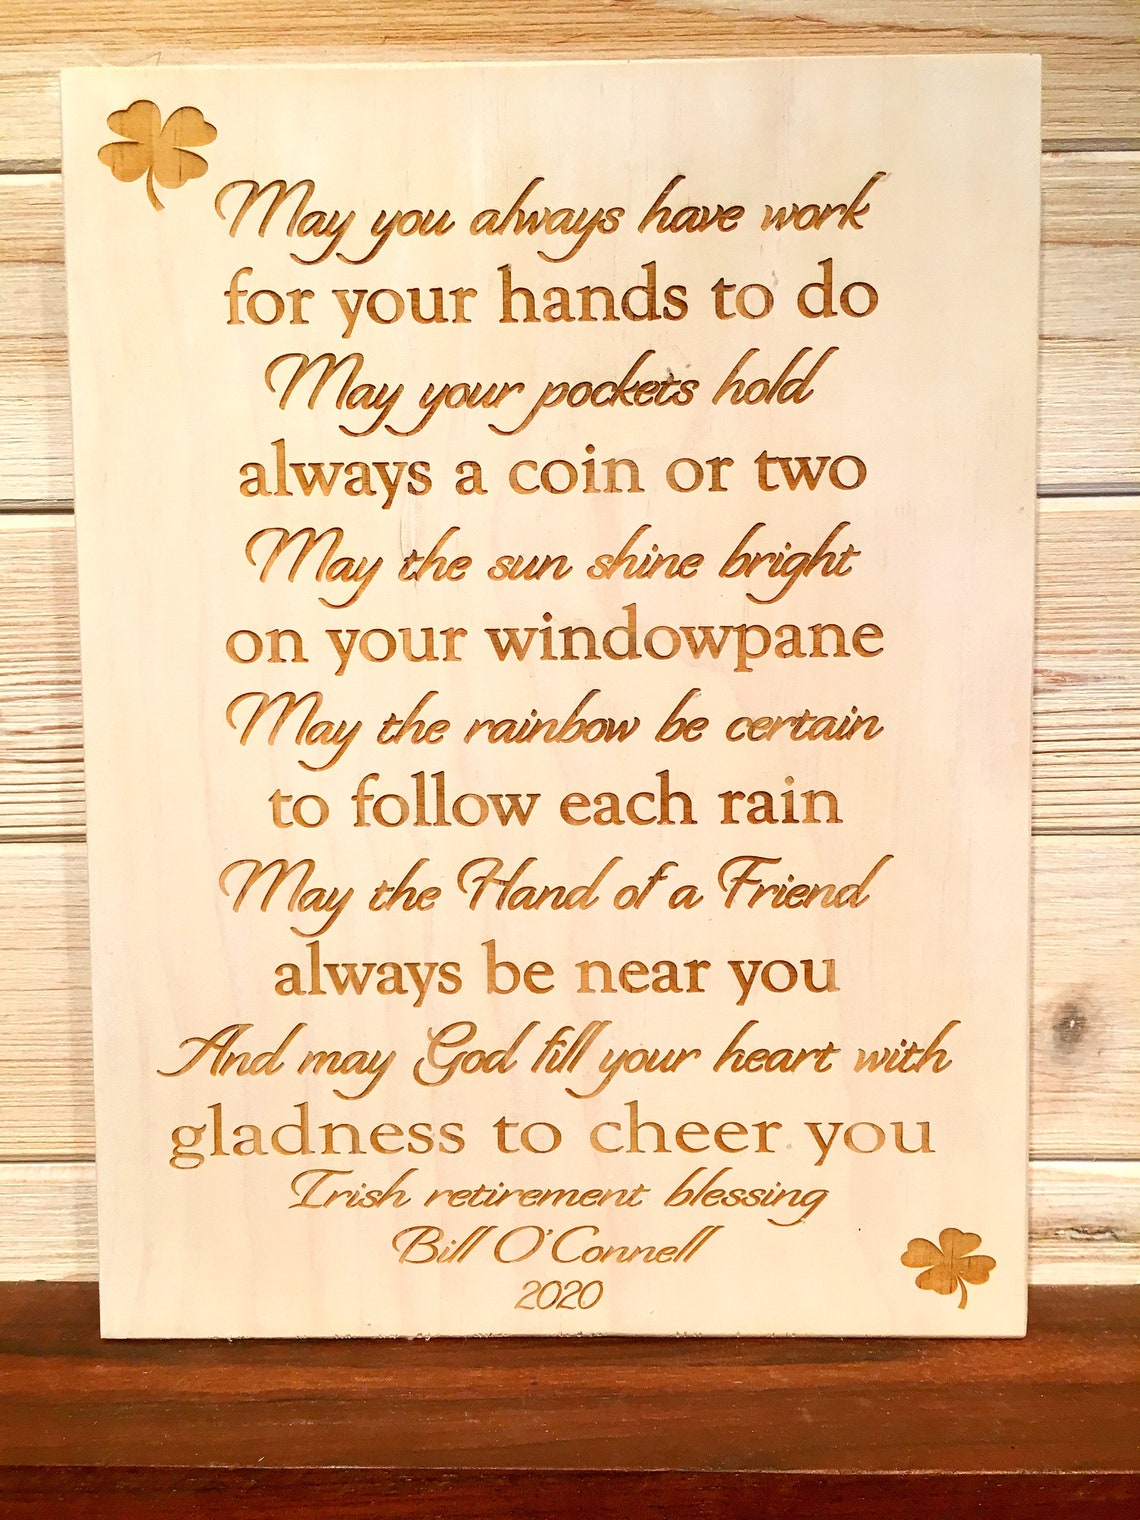 May you always have work
for your hands to do
May your pockets hold
always a coin or two
May the sun shine bright
on your windowpane
May the rainbow be certain
to follow each rain
May the Hand of a Friend
always be near you
And may God fill your heart with
gladness to cheer you
Irish retirement blessing
Bill O'Connell
2020